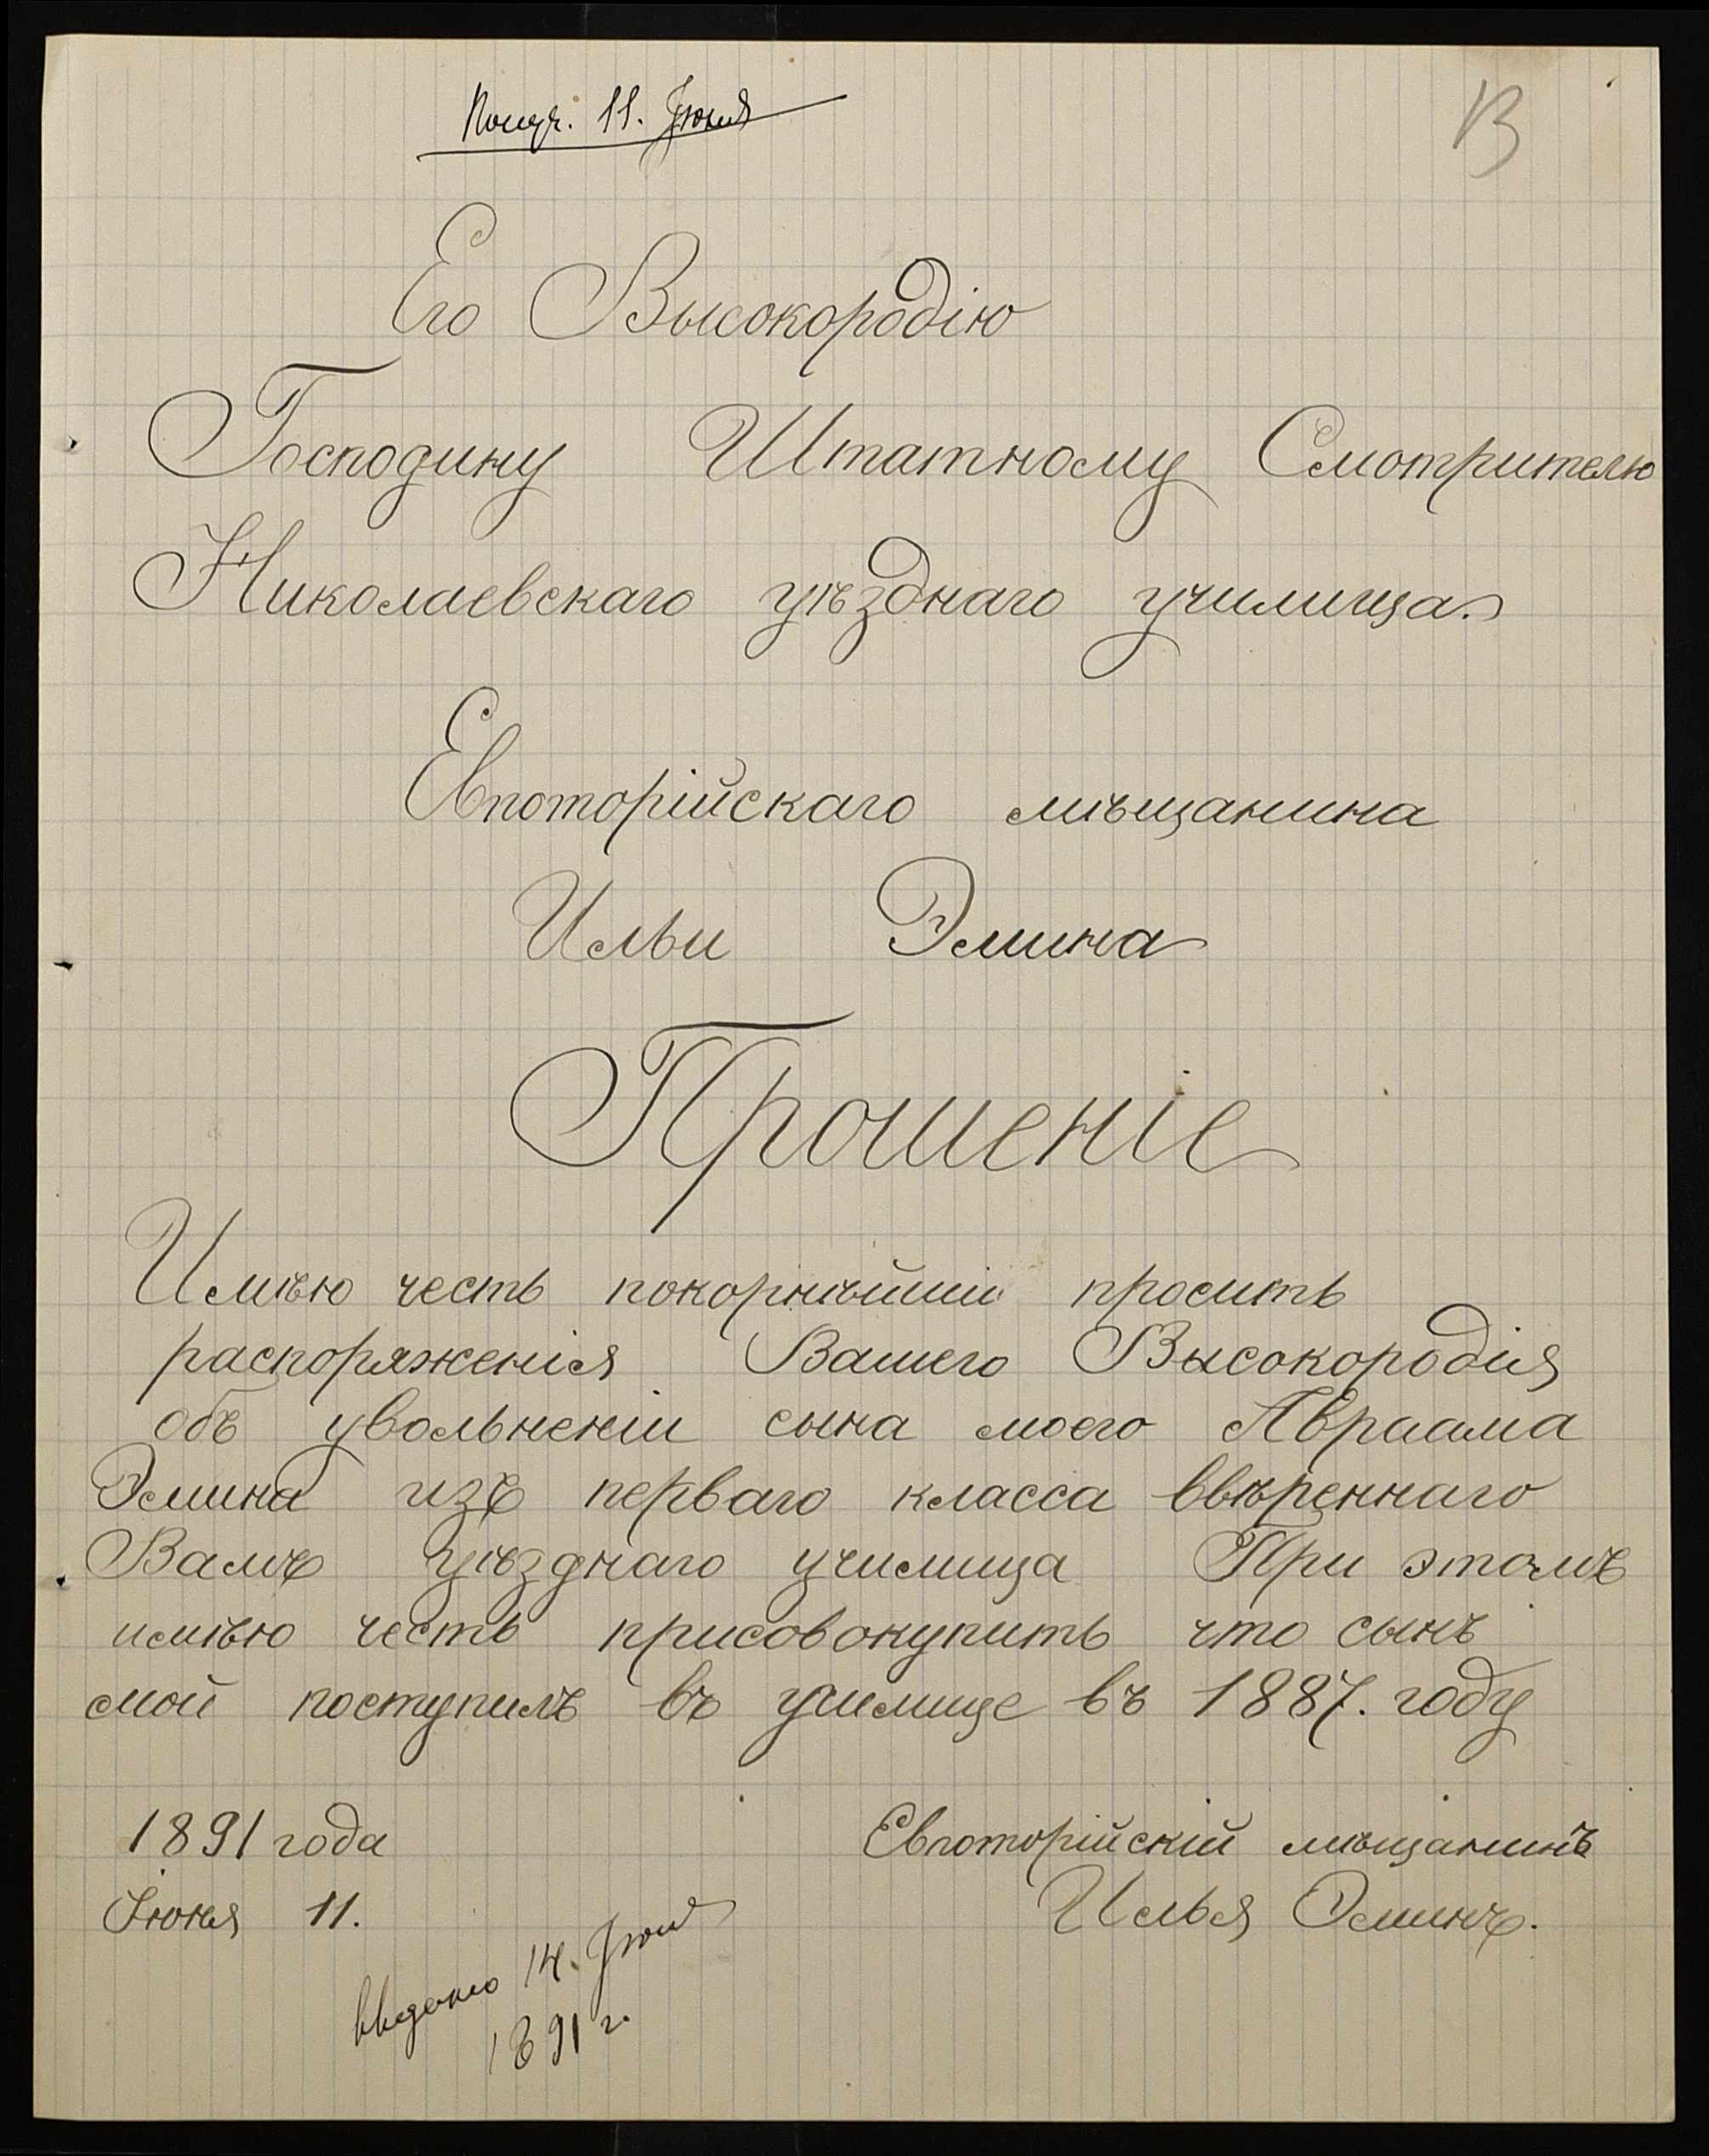 Получ. 11. Іюня
13
Его Высокородію
Господину Штатному Смотрителю
Николаевскаго уѣзднаго училища.
Евпоторійскаго мѣщанина
Ильи Эмина
Прошеніе
Имѣю честь покорнѣйши просить
распоряженія Вашего Высокородія
объ увольненіи сына моего Авраама
Эмина изъ перваго класса ввѣреннаго
Вамъ уѣзднаго училища При этомъ
имѣю честь присовокупить что сынъ
мой поступилъ въ училище въ 1887. году
1891 года
Іюня 11.
Евпоторійскій мѣщанинъ
Илья Эминъ.
14. Іюня
1891 г.